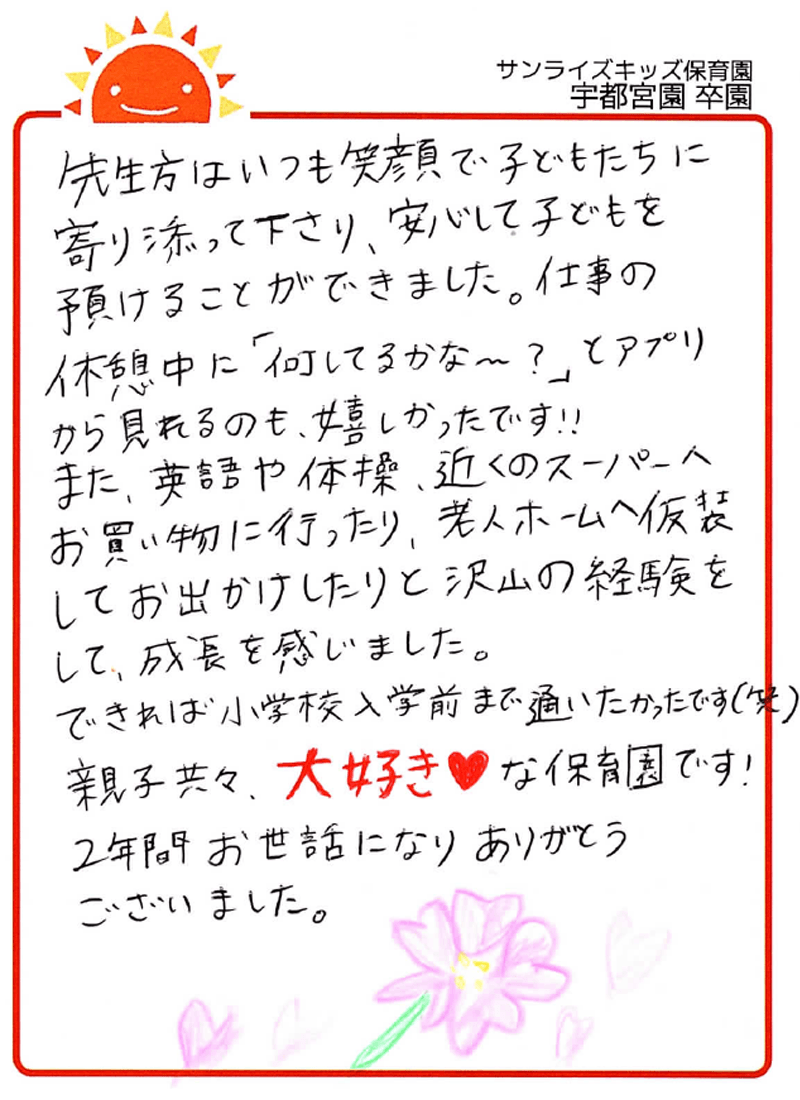 サンライズキッズ保育園
宇都宮園 卒園
先生方はいつも笑顔で子どもたちに
寄り添って下さり、安心して子どもを
預けることができました。仕事の
休憩中に「何してるかな〜？」とアプリ
から見れるのも、嬉しかったです!!
また、英語や体操、近くのスーパーへ
お買い物に行ったり、老人ホームへ仮装
してお出かけしたりと沢山の経験を
して、成長を感じました。
できれば小学校入学前まで通いたかったです(笑)
親子共々、大好き♥な保育園です!
2年間お世話になりありがとう
ございました。